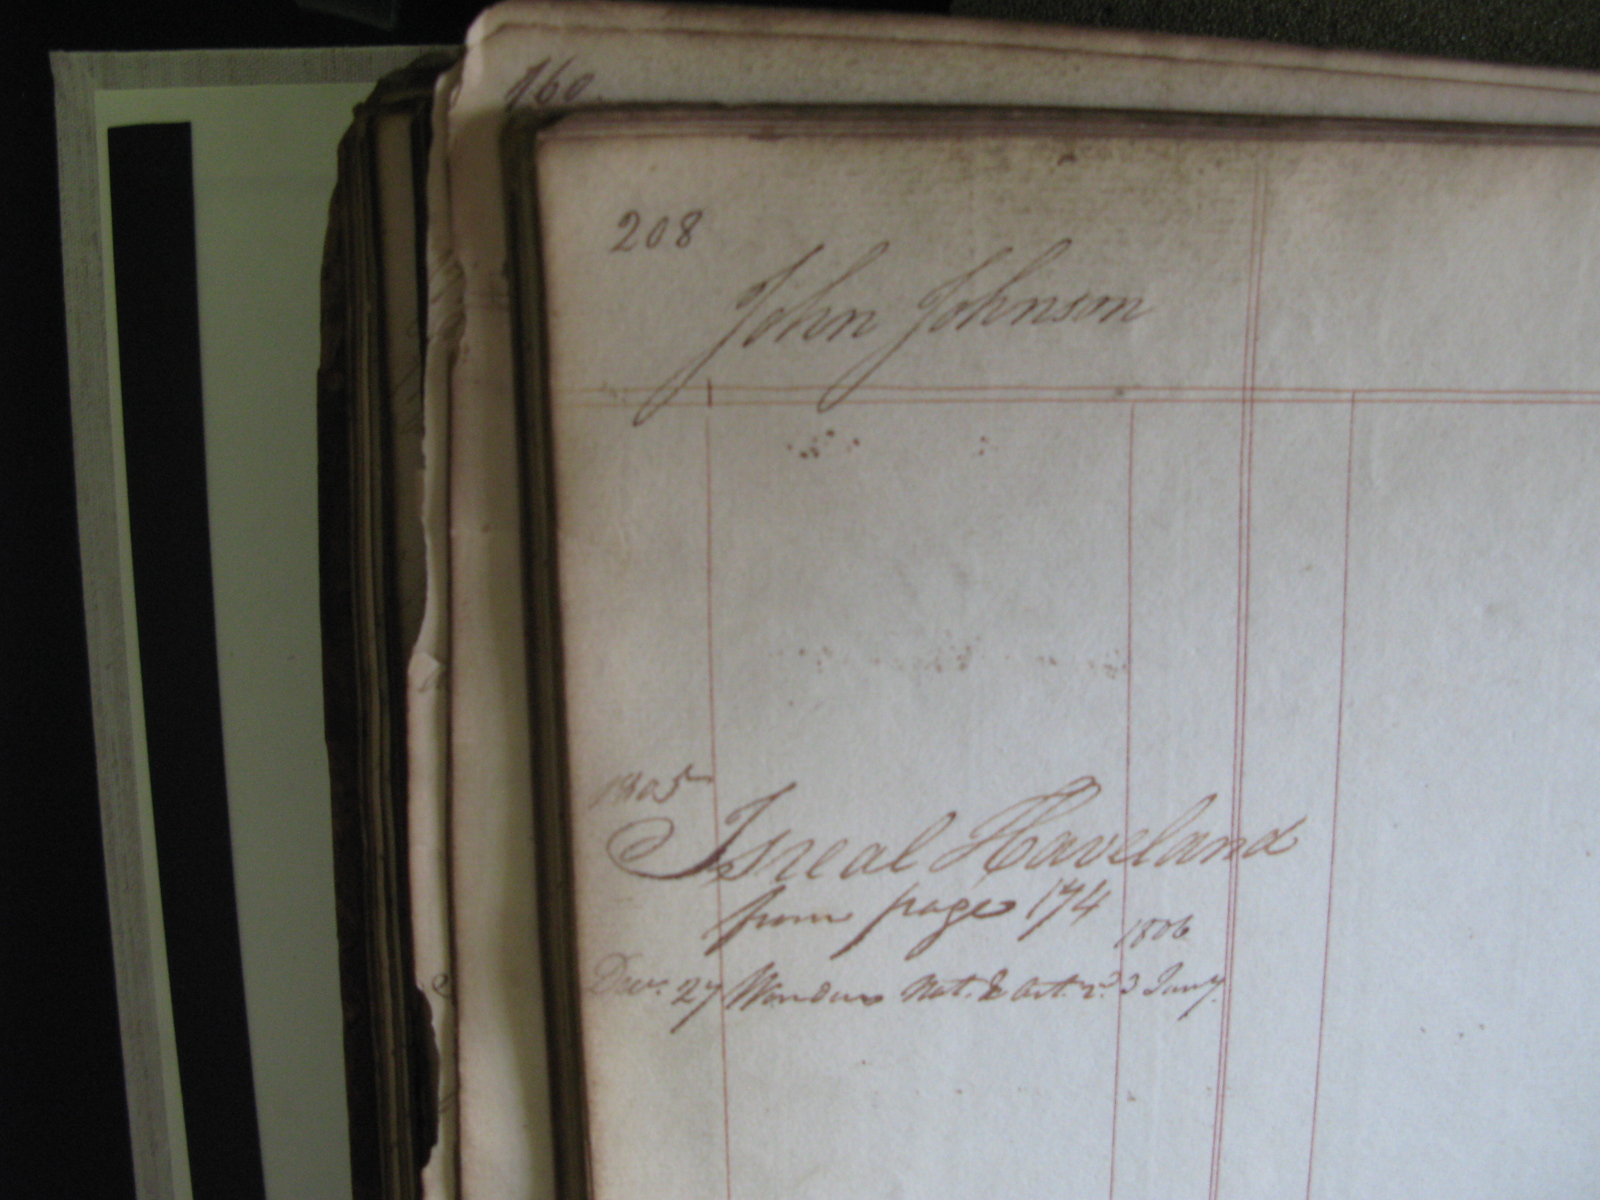 160
208
John Johnson
1805
Isreal Haveland
from page 174
1806
Dec. 27 Wonders Nat. & Art. r.d 3 Jany.